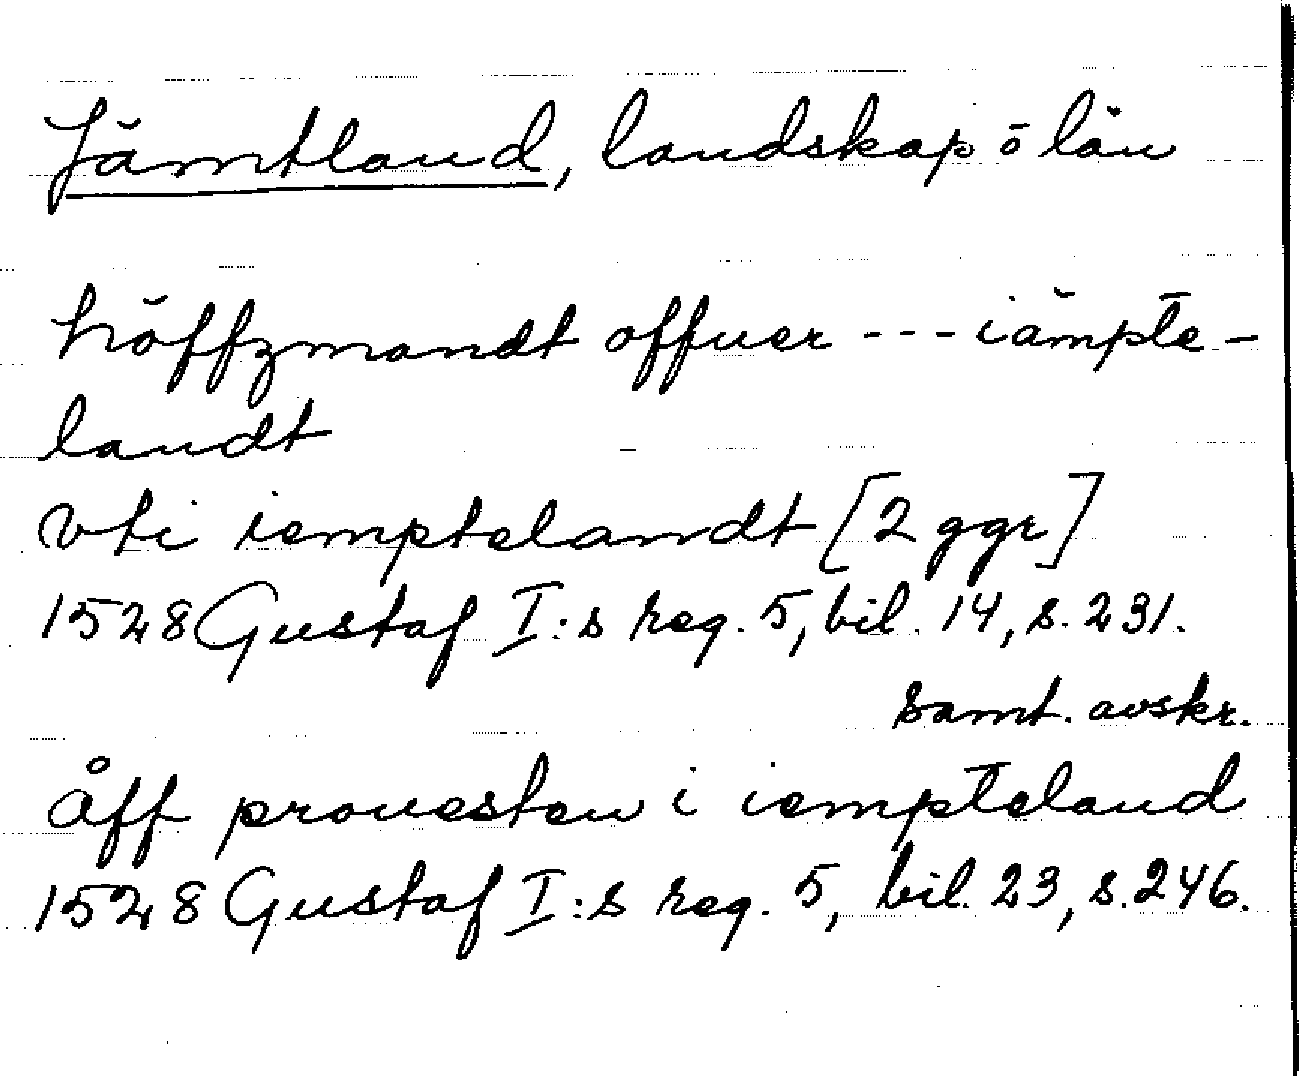 Jämtland, landskap o län
höffzmandt offuer --- iämpte-
landt
vti iemptelandt [2 ggr]
1528 Gustaf I:s reg. 5, bil. 14, s. 231.
samt. avskr.
Åff prouesten i iempteland
1528 Gustaf I:s reg. 5, bil. 23, s. 246.